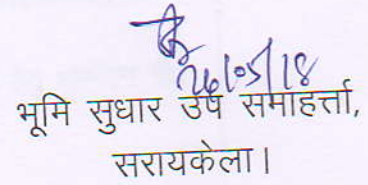 26/05/18
भूमि सुधार उप समाहर्त्ता,
सरायकेला।